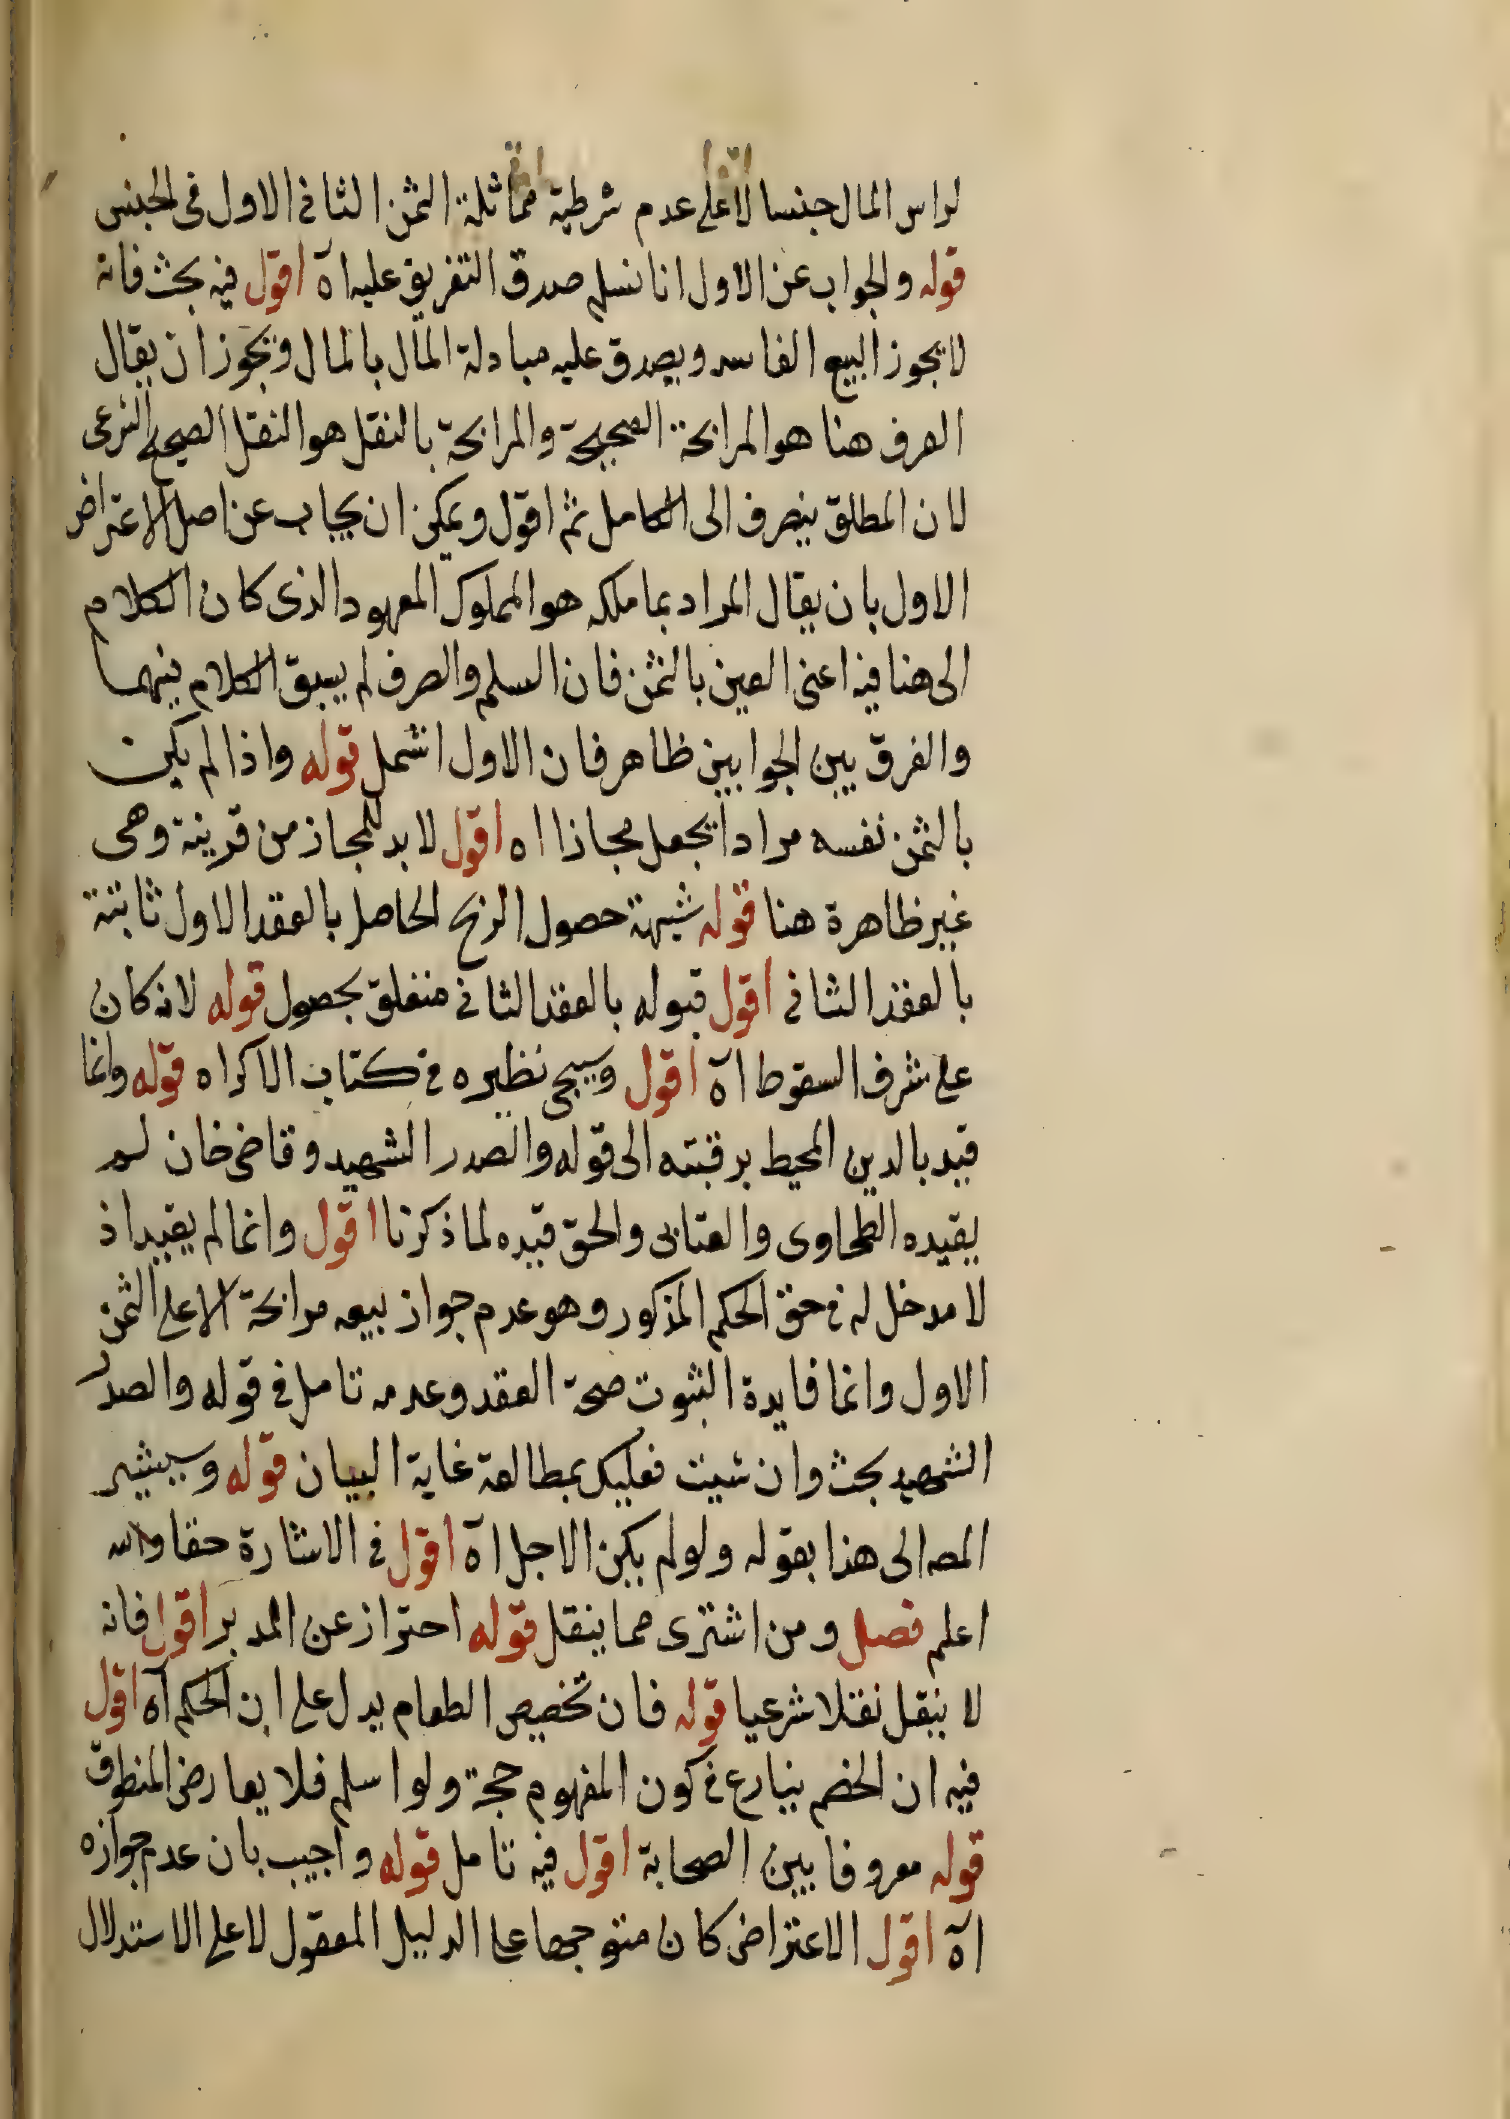 لراس المال جنسا لا على عدم شرطية مماثلة الثمن الثانى الاول فى الجنس
قوله والجواب عن الاول انا نسلم صدق التفريق عليه اه اقول فيه بحث فانه
لا يجوز البيع الفاسد ويصدق عليه مبادلة المال بالمال ويجوز ان يقال
العرف هنا هو المرابحة الصحيحة والمرابحة بالنقل هو النقل الصحيح الشرعى
لان المطلق ينصرف الى الكامل ثم اقول ويمكن ان يجاب عن اصل الاعتراض
الاول بان يقال المراد بما ملكه هو المملوك المعهود الذى كان الكلام
الى هنا فيه اعنى العين بالثمن فان السلم والصرف لم يسبق الكلام فيهما
والفرق بين الجوابين ظاهر فان الاول اشمل قوله واذا لم يكن
بالثمن نفسه مرادا يجعل مجازا اه اقول لا بد للمجاز من قرينة وهى
غير ظاهرة هنا قوله شبهة حصول الربح الحاصل بالعقد الاول ثابتة
بالعقد الثانى اقول قبوله بالعقد الثانى متعلق بحصول قوله لانه كان
على شرف السقوط اه اقول وسيجى نظيره فى كتاب الاكراه قوله وانما
قيد بالدين المحيط برقبته الى قوله والصدر الشهيد وقاضى خان لم
يقيده الطحاوى والعتابى والحق قيده لما ذكرنا اقول وانما لم يقيد اذ
لا مدخل له فى حق الحكم المذكور وهو عدم جواز بيعه مرابحة الا على الثمن
الاول وانما فايدة الثبوت صحة العقد وعدمه تامل فى قوله والصدر
الشهيد بحث وان شيت فعليك بمطالعة غاية البيان قوله وسيشير
المصه الى هذا بقوله ولو لم يكن الاجل اه اقول فى الاشارة خفا والله
اعلم فصل ومن اشترى مما ينقل قوله احتراز عن المدبر اقول فانه
لا ينقل نقلا شرعيا قوله فان تخصيص الطعام يدل على ان الحكم اه اقول
فيه ان الخصم ينازع فى كون المفهوم حجة ولو اسلم فلا يعارض المنطوق
قوله معروفا بين الصحابة اقول فيه تامل قوله واجيب بان عدم جوازه
اه اقول الاعتراض كان متوجها على الدليل المعقول لا على الاستدلال